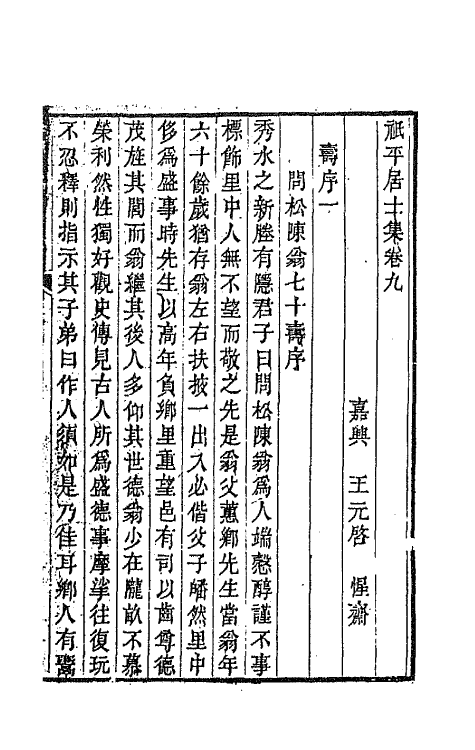 祇平居士集卷九
嘉興 王元啓 惺齋
壽序一
問松陳翁七十壽序
秀水之新塍有隱君子曰問松陳翁爲人端慤醇謹不事
標飾里中人無不望而敬之先是翁父蕙鄉先生當翁年
六十餘歲猶存翁左右扶掖一出入必偕父子皤然里中
侈爲盛事時先生以高年負鄉里重望邑有司以齒尊德
茂旌其閭而翁繼其後人多仰其世德翁少在隴畝不慕
榮利然性獨好觀史傳見古人所爲盛德事摩挲往復玩
不忍釋則指示其子弟曰作人須如是乃佳耳鄉人有鬻